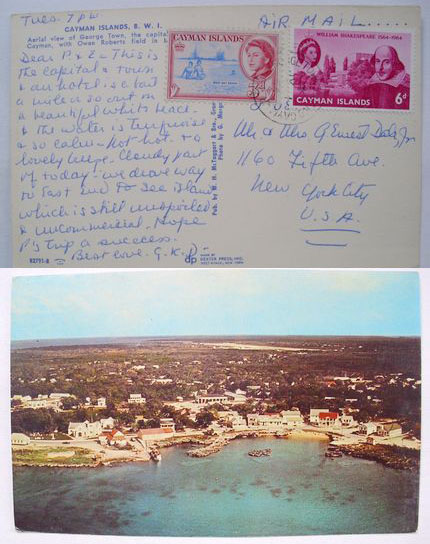 Tues. 7 P.M.
AIR MAIL.....
CAYMAN ISLANDS, B. W. I.
Aerial view of George Town, the capital
Cayman, with Owen Roberts field in b
Dear P & E - This is
the capital &
our hotel is about
a mile or so out on
a beautiful white beach
& the water is turquoise
& so calm - not hot - &
lovely Cloudy part
of today - we drove way
to East End to see Island
which is still unspoiled
& uncommercial. Hope
P's trip a success.
Best love. G.K.D.
83791-B
Pub. by W. H. McTaggart & Son,
Photo by G.
dp
MADE BY
DEXTER PRESS, INC.
WEST NYACK, NEW YORK
CAYMAN ISLANDS
WILLIAM SHAKESPEARE 1564-1964
CAYMAN ISLANDS 6d
Mr & Mrs G Ernest Jr
1160 Fifth Ave.
New York City
U.S.A.